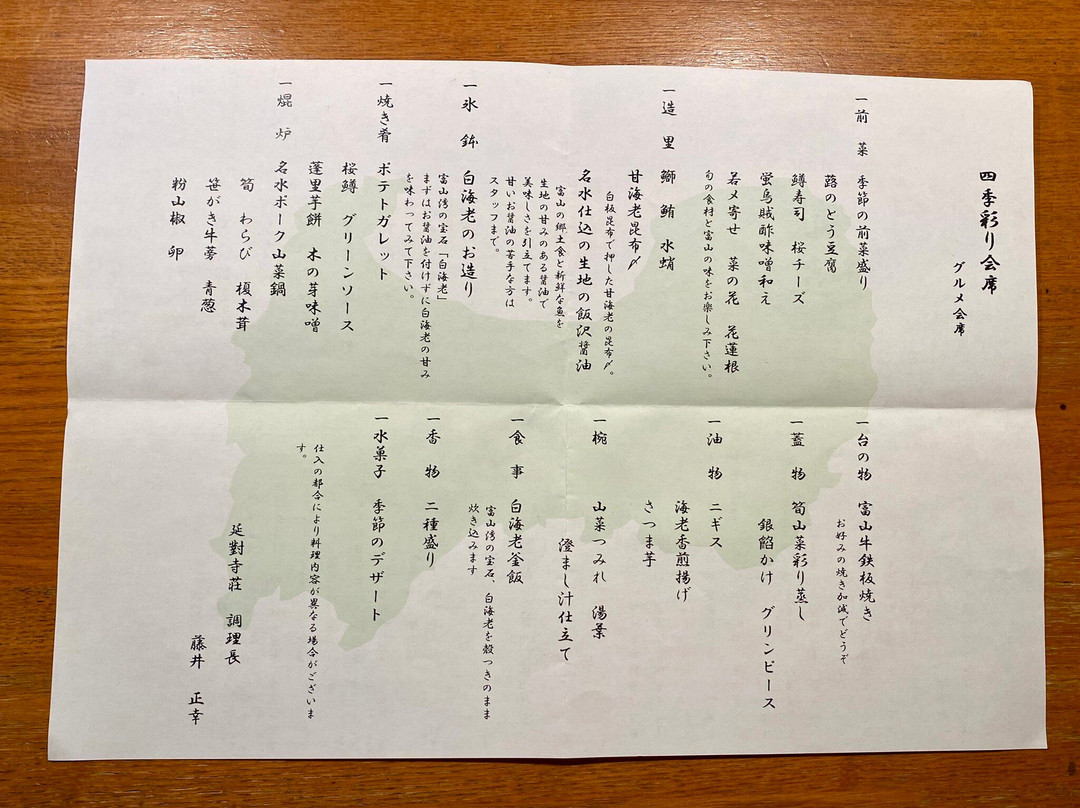 四季彩り会席
グルメ会席
一前 菜 季節の前菜盛り
蕗のとう豆腐
鱒寿司 桜チーズ
蛍烏賊酢味噌和え
若メ寄せ 菜の花 花蓮根
旬の食材と富山の味をお楽しみ下さい。
一造 里 鰤 鮪 水蛸
甘海老昆布〆
白板昆布で押した甘海老の昆布〆。
名水仕込の生地の飯沢醤油
富山の郷土食と新鮮な魚を
生地の甘みのある醤油で
美味しさを引立てます。
甘いお醤油の苦手な方は
スタッフまで。
一氷 鉢 白海老のお造り
富山湾の宝石「白海老」
まずはお醤油を付けずに白海老の甘み
を味わってみて下さい。
一焼き肴 ポテトガレット
桜鱒 グリーンソース
蓬里芋餅 木の芽味噌
一焜 炉 名水ポーク山菜鍋
筍 わらび 榎木茸
笹がき牛蒡 青葱
粉山椒 卵
一台の物 富山牛鉄板焼き
お好みの焼き加減でどうぞ
一蓋 物 筍山菜彩り蒸し
銀餡かけ グリンピース
一油 物 ニギス
海老香煎揚げ
さつま芋
一椀 山菜つみれ 湯葉
澄まし汁仕立て
一食 事 白海老釜飯
富山湾の宝石、白海老を殻つきのまま
炊き込みます
一香 物 二種盛り
一水菓子 季節のデザート
仕入の都合により料理内容が異なる場合がございま
す。
延對寺荘 調理長
藤井 正幸